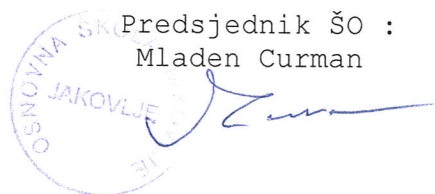 Predsjednik ŠO :
Mladen Curman
OSNOVNA ŠKOLA
JAKOVLJE